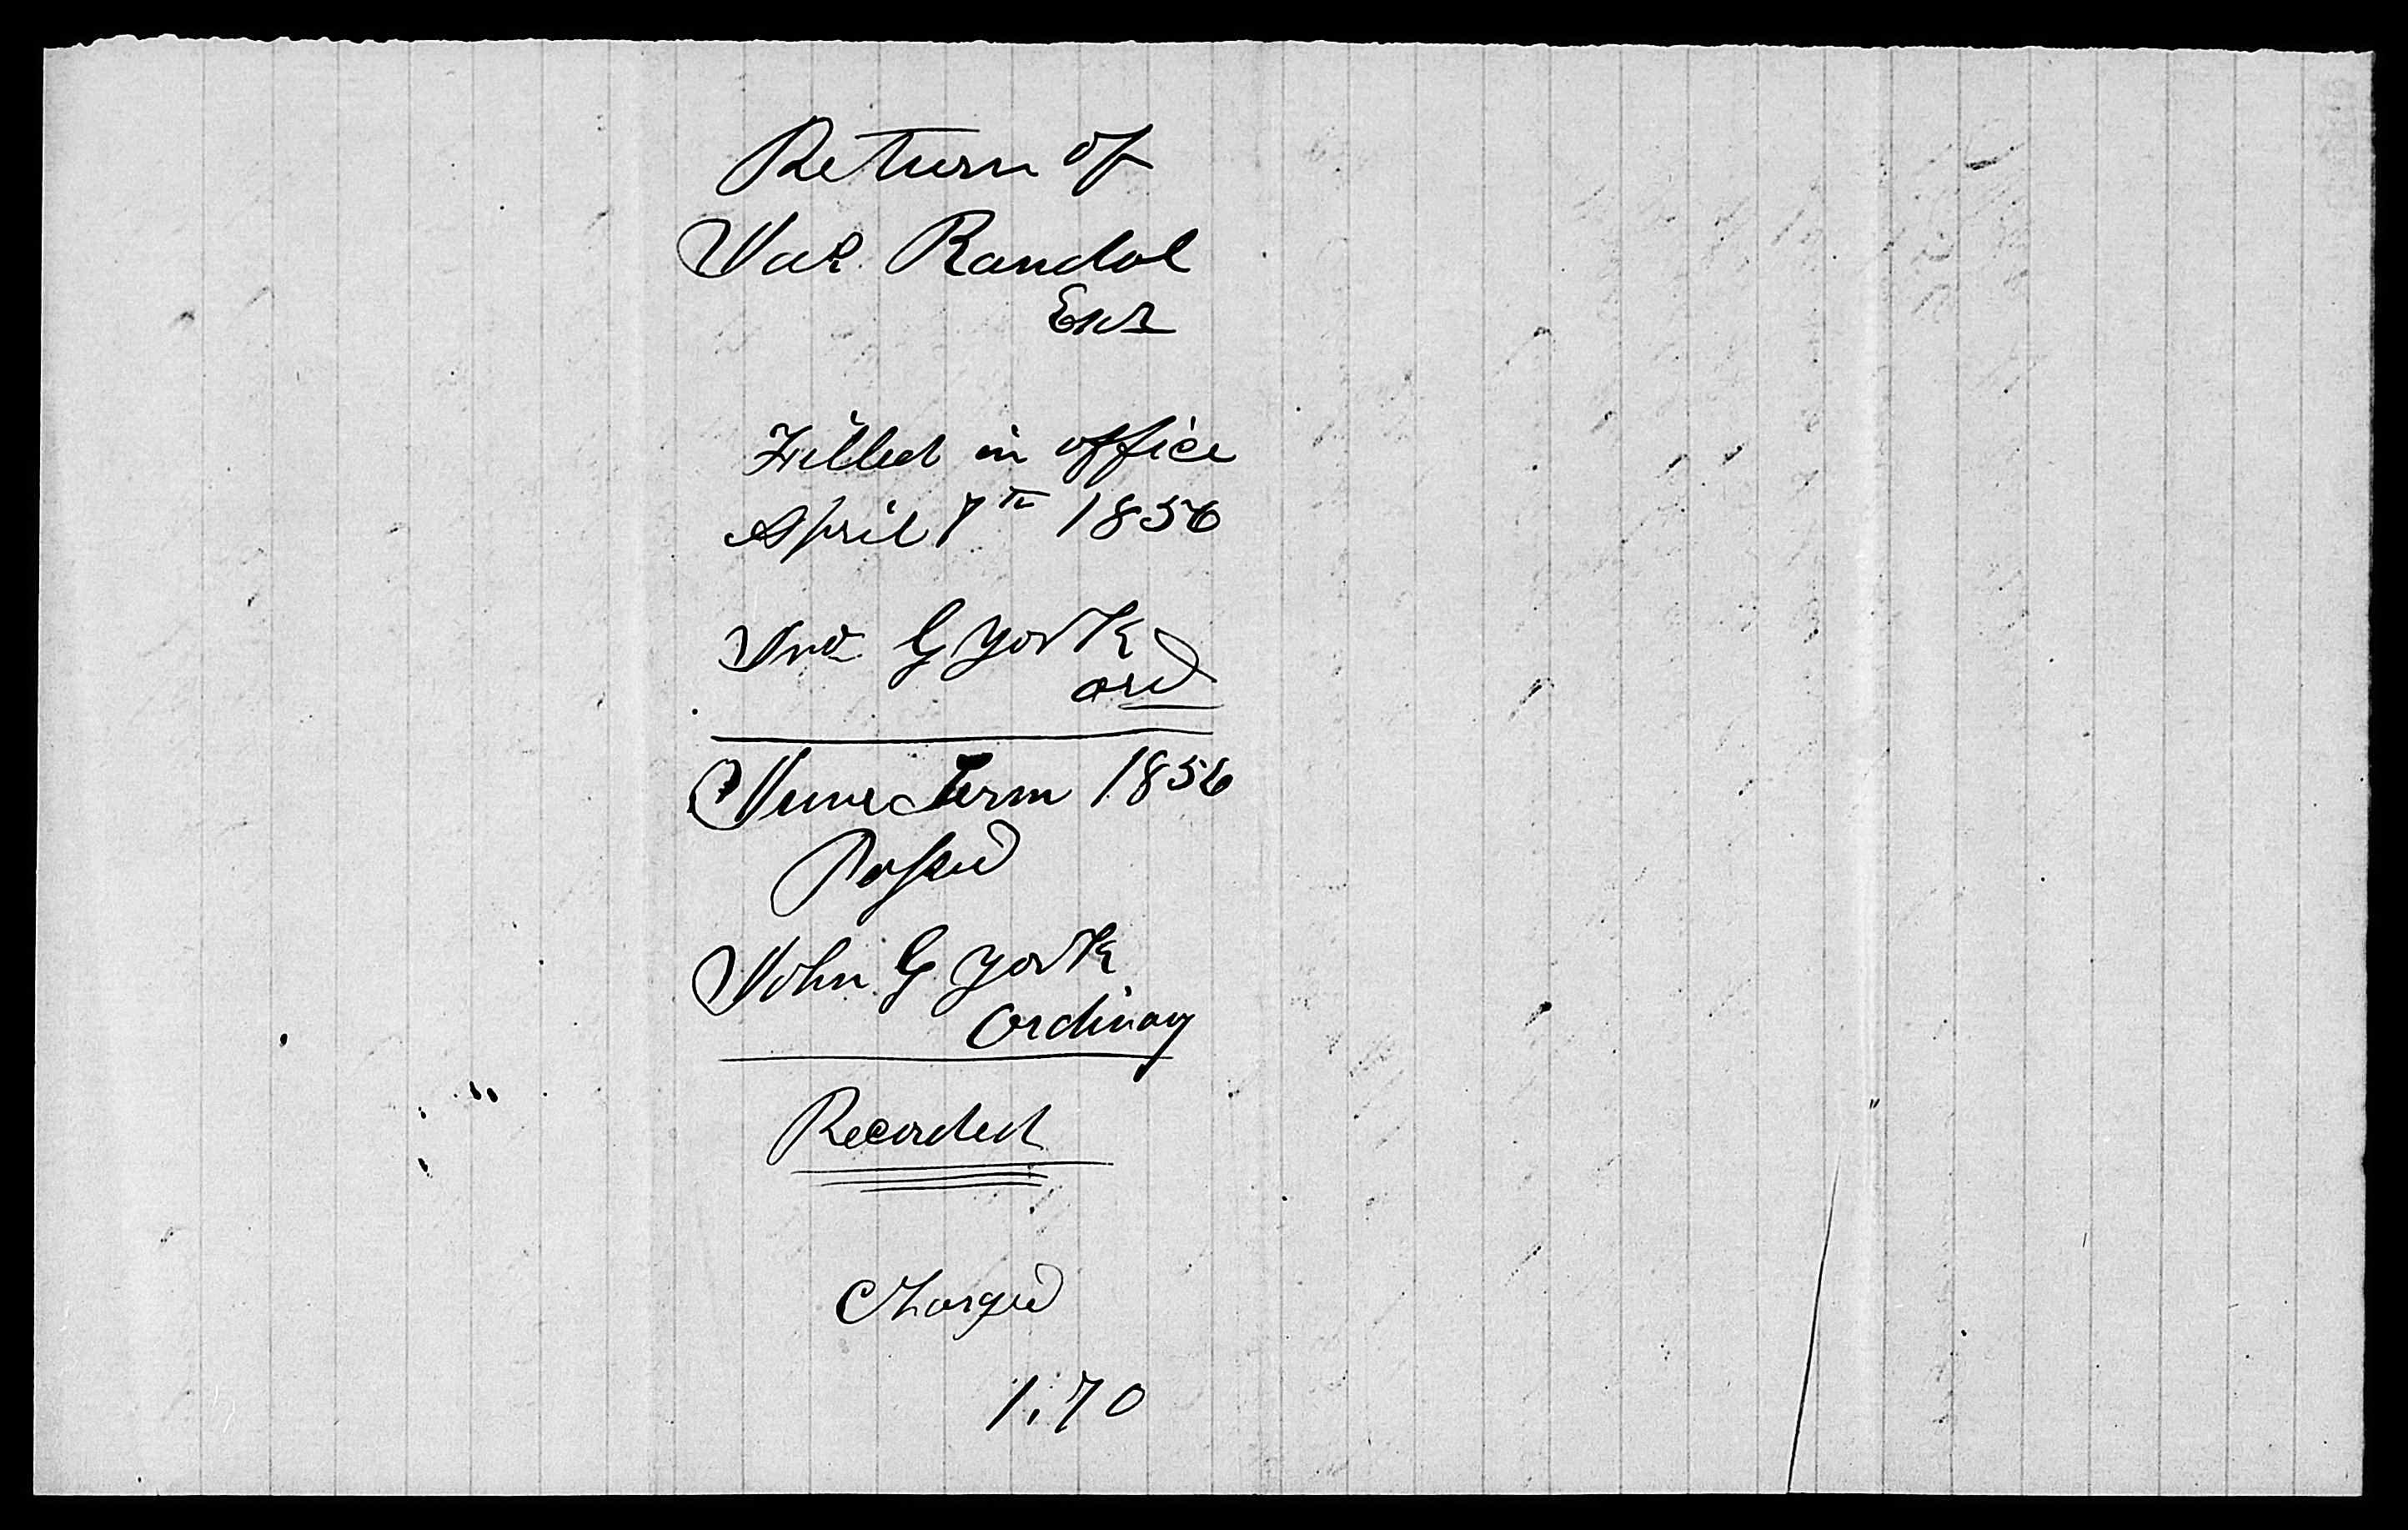 Return of
Jas. Randol
Exr
Filled in office
April 7th 1856
Jno G York
ord
June Term 1856
Passed
John G York
Ordinary
Recorded
Charged
1.70